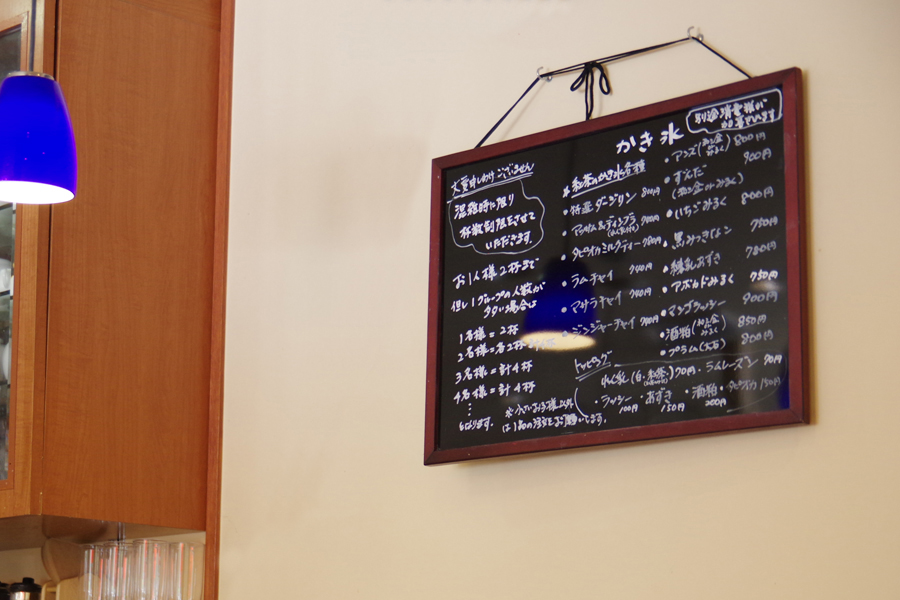 大変申しわけございません
混雑時に限り
杯数制限をさせて
いただきます。
お1人様2杯まで
但し1グループの人数が
場合は
1名様=2杯
2名様=各2杯
3名様=計4杯
4名様=計4杯
⋮
となります。
は1品の注文をお願いします。
かき氷
別途消費税が
紅茶のかき氷各種
・特選ダージリン 800円
・タピオカミルクティー 780円
・ラムチャイ
・マサラチャイ
・ジンジャーチャイ
・アンズ 800円
・ずんだ 900円
・いちごみるく 800円
・黒みつきなこ 750円
・練乳あずき 700円
・アボカドみるく 750円
・マンゴラッシー 900円
・酒粕 850円
・プラム(大石) 800円
トッピング
れん乳(白・紅茶)70円・ラムレーズン 90円
・ラッシー 100円 ・あずき 150円 ・酒粕 200円 ・タピオカ 150円